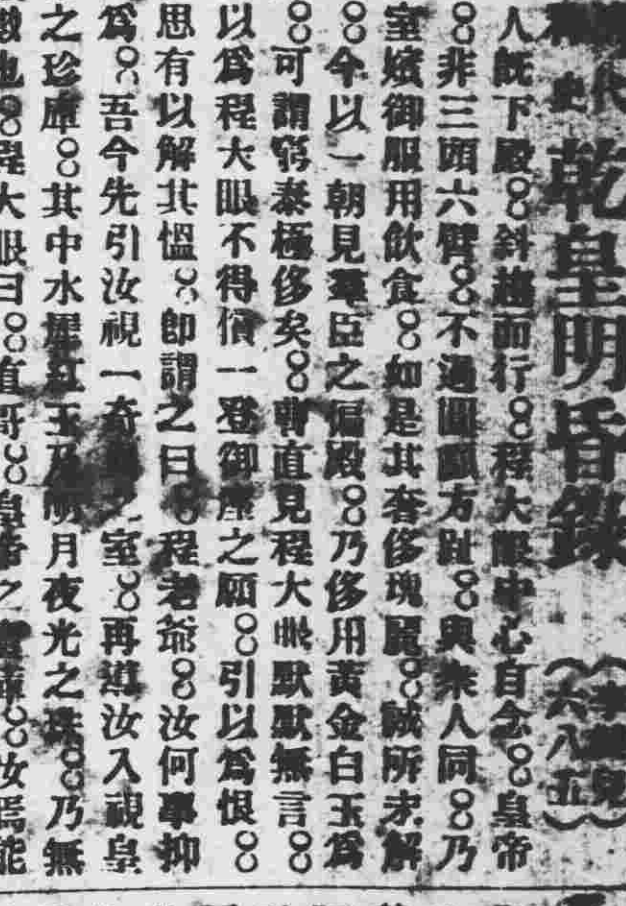 代史
乾皇明昏錄
（六八五）
人既下殿。斜趨而行。程大眼中心自念。皇帝
非三頭六臂。不過圓顱方趾。與衆人同。乃
室嬪御服用飲食。如是其奢侈瑰麗。誠所未解
今以一朝見羣臣之偏殿。乃侈用黃金白玉爲
可謂窮泰極侈矣。曹直見程大眼默默無言。
以爲程大眼不得償一登御座之願。引以爲恨。
思有以解其慍。卽謂之曰。程老爺。汝何事抑
爲。吾今先引汝視一奇 室。再導汝入視皇
之珍庫。其中水犀紅玉乃 月夜光之珠。乃無
也。程大眼曰。直哥。皇帝之 庫。汝焉能